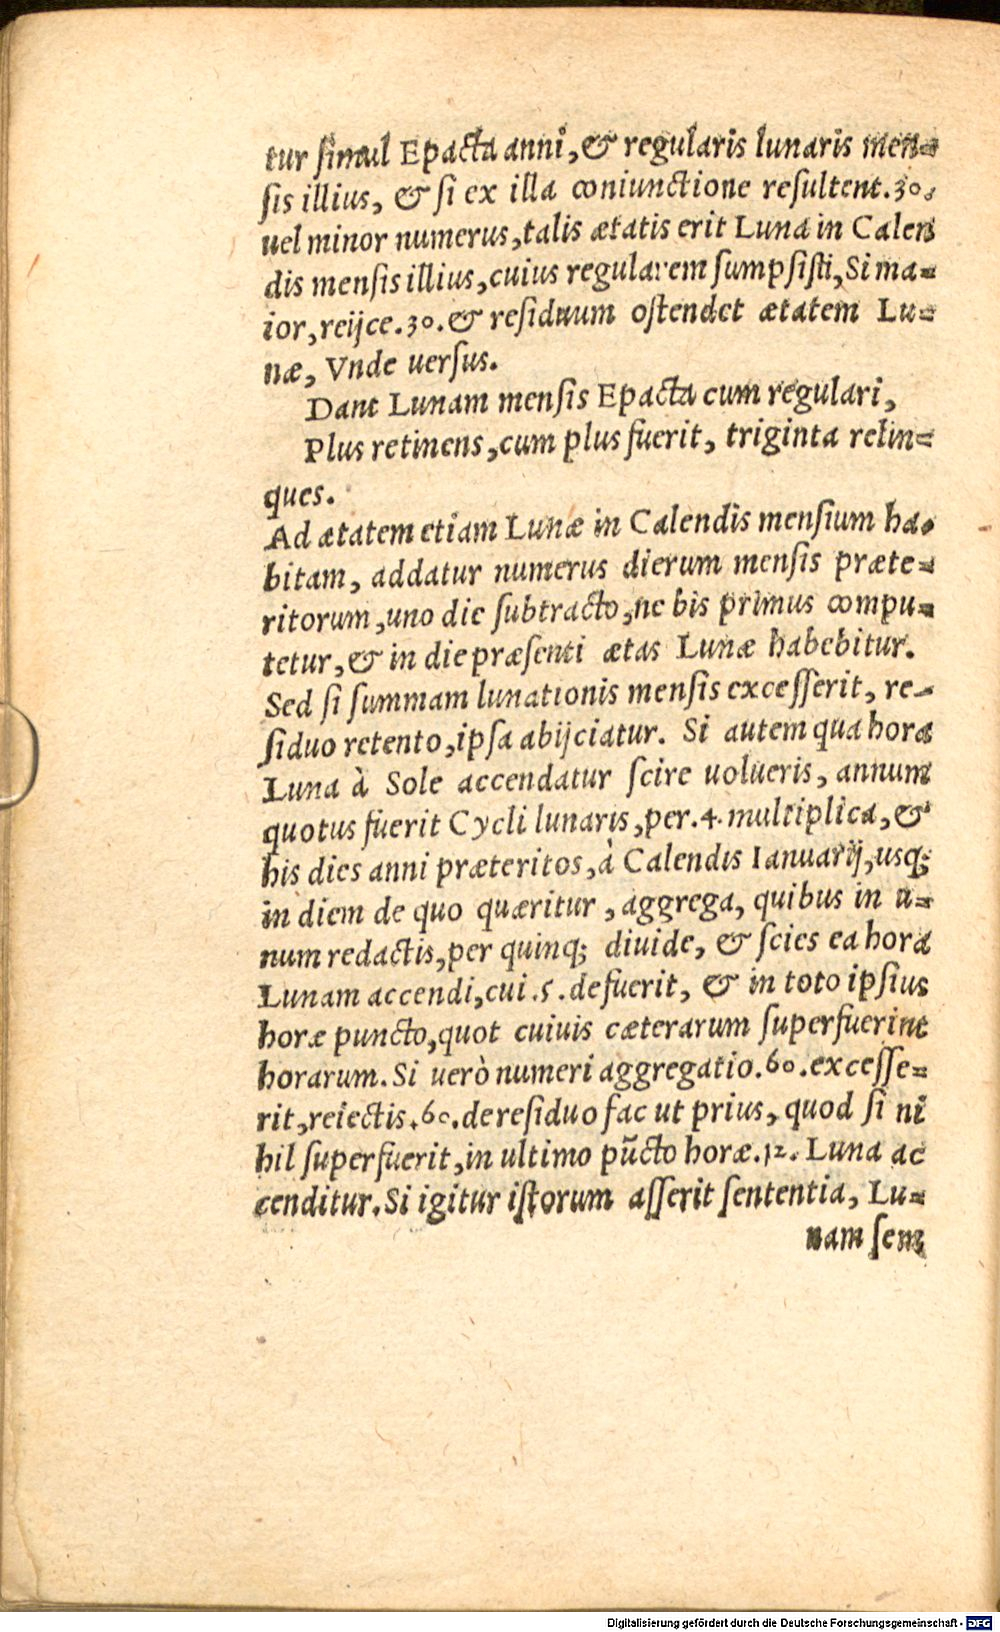 tur simul Epacta anni, & regularis lunaris men=
sis illius, & si ex illa coniunctione resultent.30.
uel minor numerus, talis ætatis erit Luna in Calen
dis mensis illius, cuius regularem sumpsisti, Si ma=
ior, reijce.30. & residuum ostendet ætatem Lu=
næ, Vnde uersus.
Dant Lunam mensis Epacta cum regulari,
Plus retinens, cum plus fuerit, triginta relin=
ques.
Ad ætatem etiam Lunæ in Calendis mensium ha=
bitam, addatur numerus dierum mensis præte=
ritorum, uno die subtracto, ne bis primus compu=
tetur, & in die præsenti ætas Lunæ habebitur.
Sed si summam lunationis mensis excesserit, re=
siduo retento, ipsa abijciatur. Si autem qua hora
Luna à Sole accendatur scire uolueris, annum
quotus fuerit Cycli lunaris, per.4. multiplica, &
his dies anni præteritos, à Calendis Ianuarij, usq;
in diem de quo quæritur, aggrega, quibus in u=
num redactis, per quinq; diuide, & scies ea hora
Lunam accendi, cui.5. defuerit, & in toto ipsius
horæ puncto, quot cuiuis cæterarum superfuerint
horarum. Si uerò numeri aggregatio.60. excesse=
rit, reiectis.60. de residuo fac ut prius, quod si ni
hil superfuerit, in ultimo pũcto horæ.12. Luna ac
cenditur. Si igitur istorum asserit sententia, Lu=
nam sem
Digitalisierung gefördert durch die Deutsche Forschungsgemeinschaft - DFG